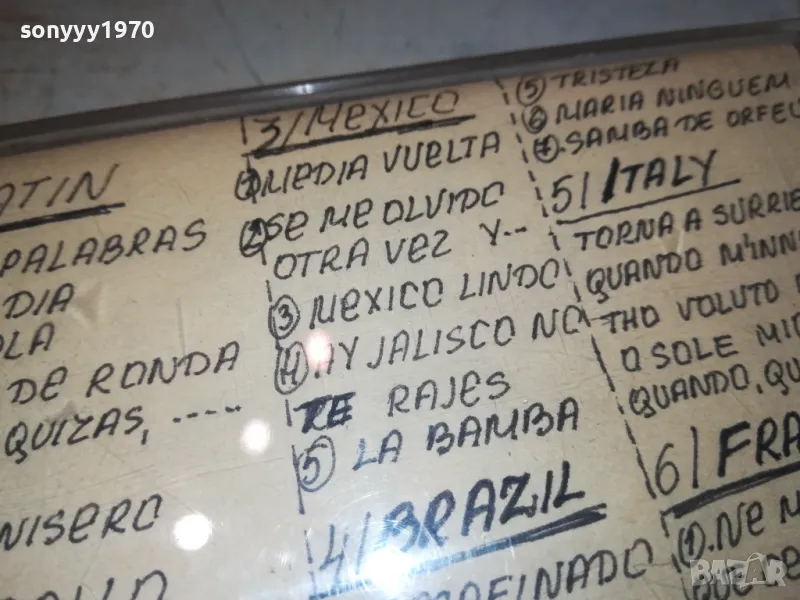 sonyyy1970
PALABRAS
DIA
DE RONDA
QUIZAS, .....
3/ MEXICO
① MEDIA VUELTA
② SE ME OLVIDO
OTRA VEZ Y...
③ MEXICO LINDO
④ AY JALISCO NO
TE RAJES
⑤ LA BAMBA
4/ BRAZIL
⑤ TRISTEZA
⑥ MARIA NINGUEM
⑦. SAMBA DE ORFEU
5/ ITALY
TORNA A SURRIE
QUANDO M'INN
THO VOLUTO
O SOLE MI
QUANDO, QU
6/ FRA
①. NE
BAZAR